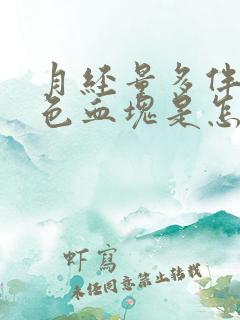 月经量多伴
色血塊是怎
虾寫
未经同意禁止转载